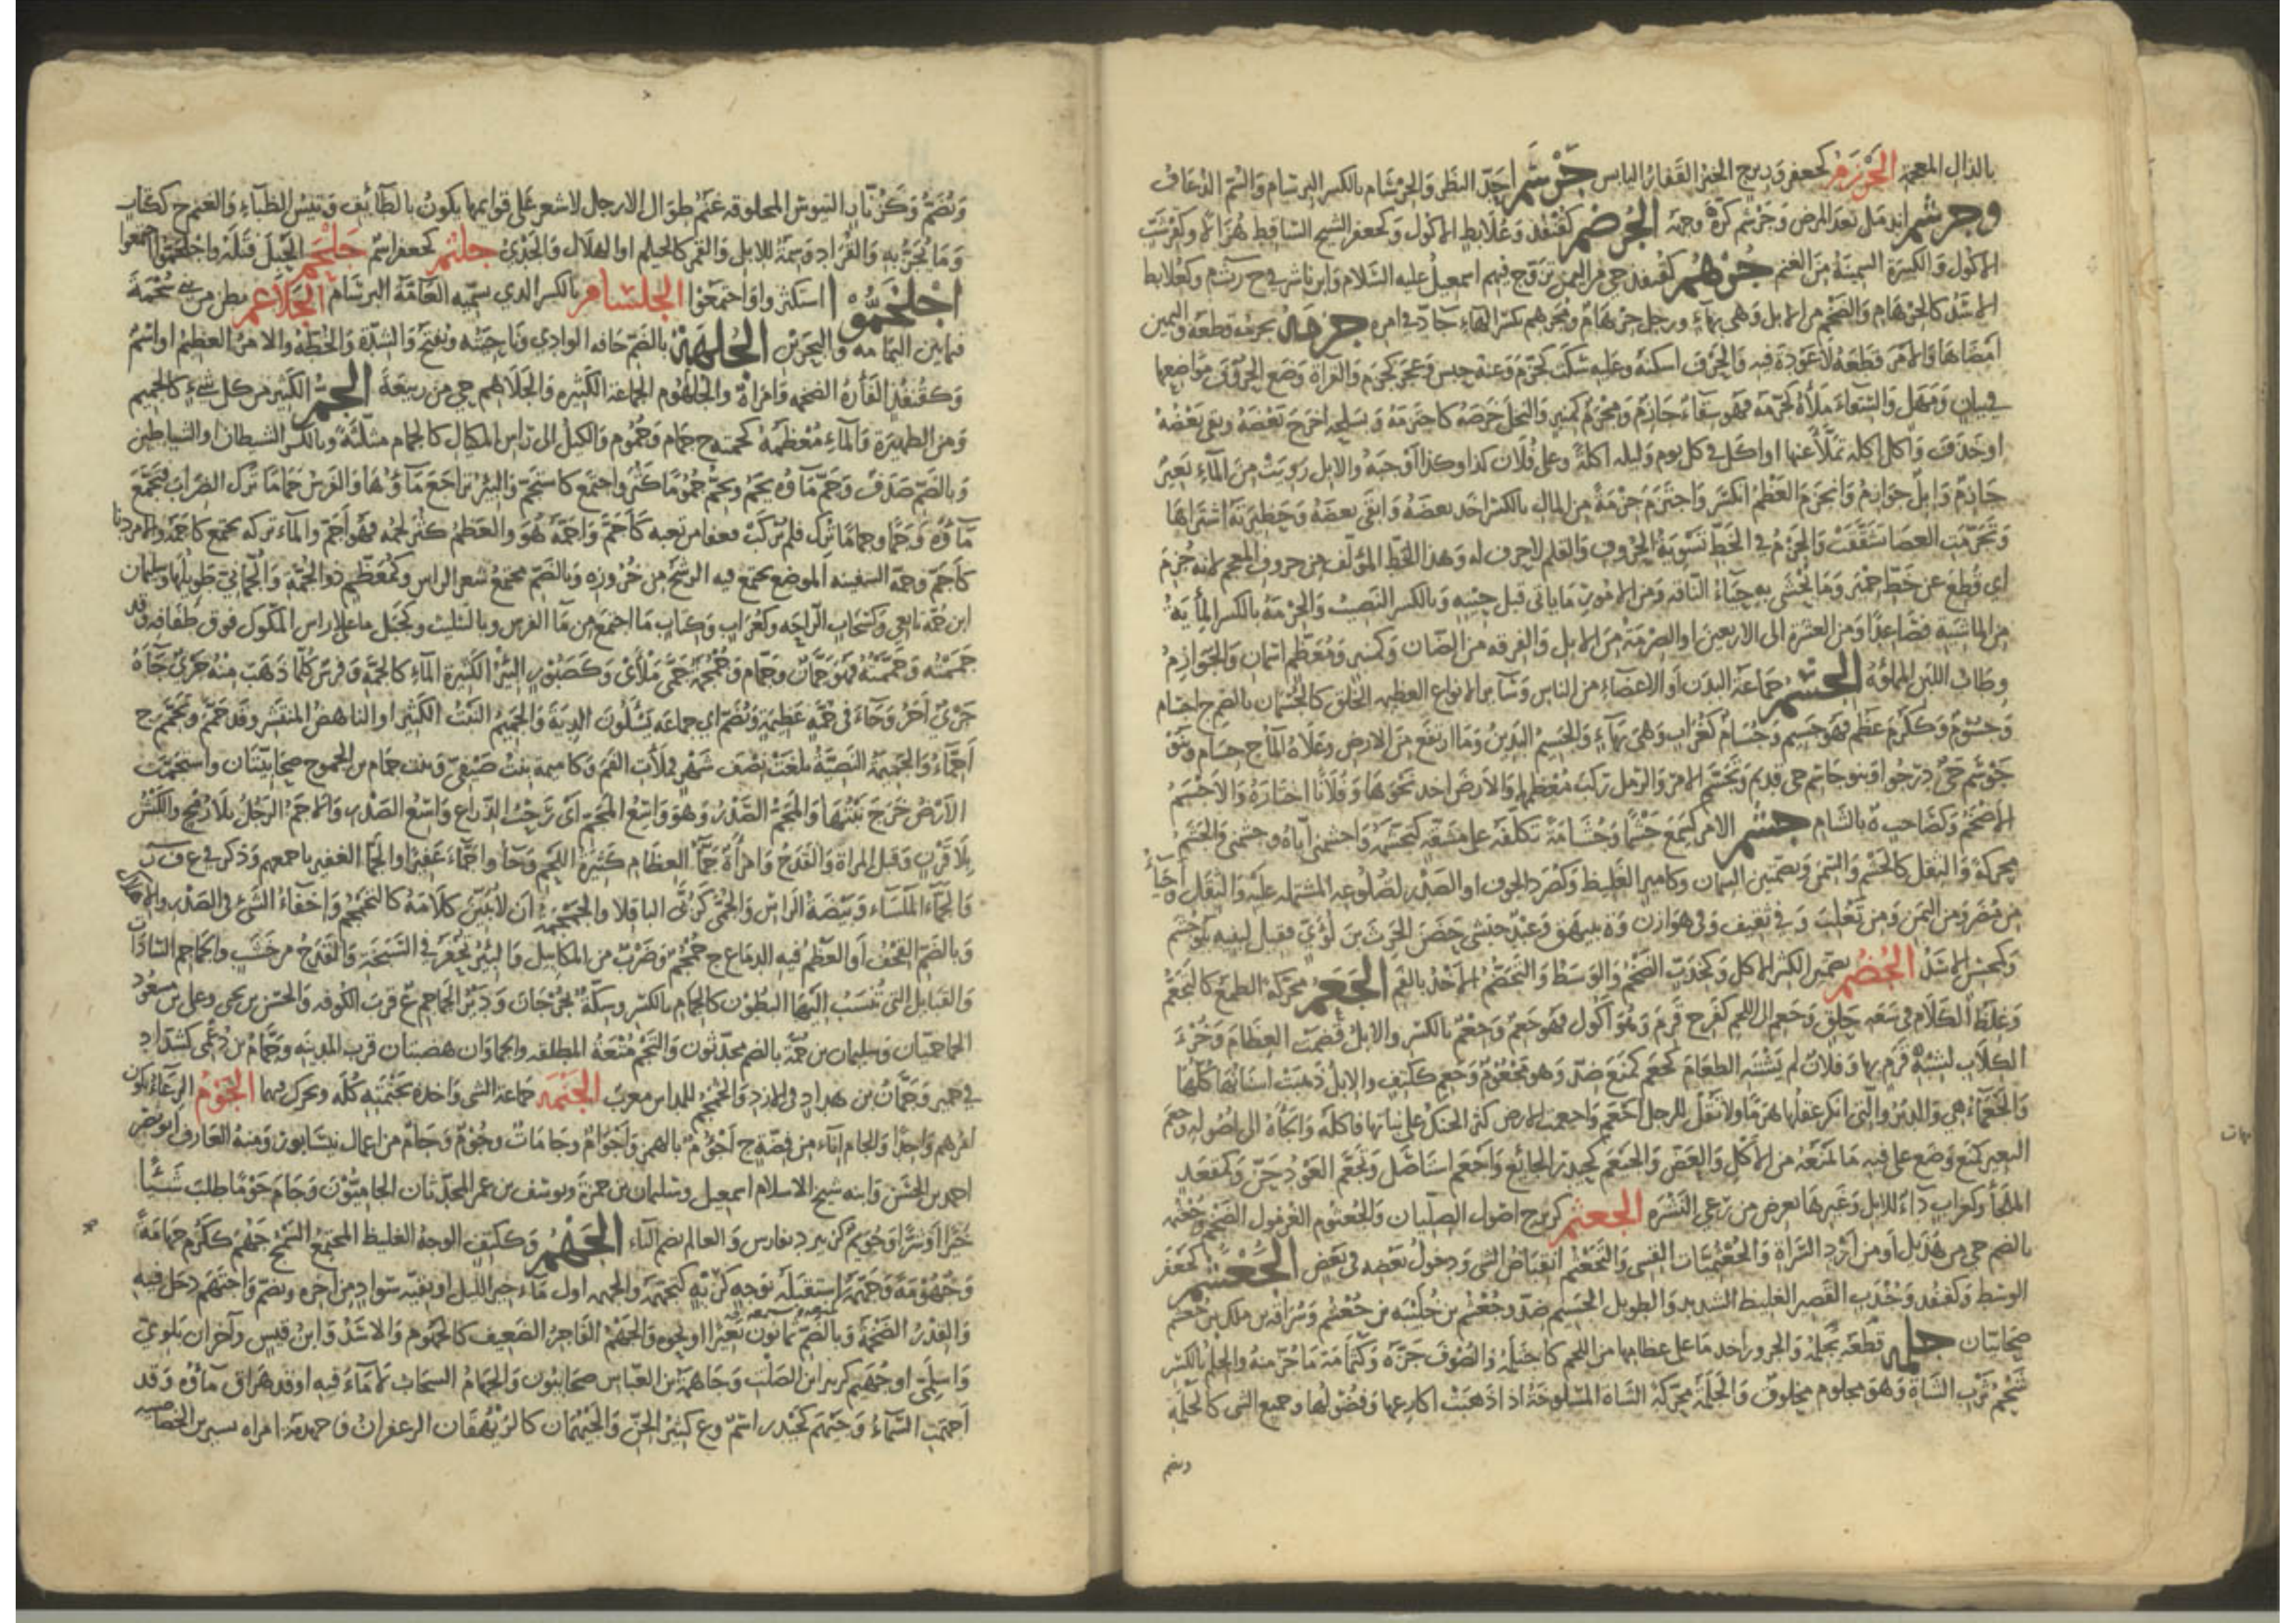 بالذال المعجمة الجَرْزَم كجعفر وزبرج الخبز القفار اليابس جَرْشَم احدّ النظر والجرشام بالكسر البرسام والسم الزعاف
وجرشم اندمل بعد المرض وجرشم كرّه وجهه الجرضم كقنفذ وعلابط الاكول وكجعفر الشيخ الساقط هزالا وكقرشبّ
الاكول والكبيرة السمينة من الغنم جُرْهُم كقنفذ حي من اليمن تزوج فيهم اسمعيل عليه السلام وابن ناشر في ح ر ث م وكعلابط
الاسد كالجرهام والضخم من الابل وهي بهاء ورجل جرهام ومجرهم بكسر الهاء جادّ في امره جزمه يجزمه قطعه واليمين
امضاها والامر قطعه لا عودة فيه والحرف اسكنه وعليه سكت كجزّم وعنه جبن وعجز كجزّم والقراة وضع الحروف مواضعها
في بيان ومهل والسقاء ملأه كجزّمه فهو سقاء جازم ومجزم كمنبر والنخل خرصه كاجتزمه وبسلحه اخرج بعضه وبقي بعضه
او خذف واكل اكلة تملّأ عنها او اكل في كل يوم وليلة اكلة وعلى فلان كذا وكذا اوجبه والابل رويت من الماء بعير
جازم وابل جوازم وانجزم العظم انكسر واجتزم جزمة من المال بالكسر اخذ بعضه وابقى بعضه وحظيرته اشتراها
وتجزّمت العصا تشققت والجزم في الخط تسوية الحروف والقلم لا حرف له وهذا الخط المؤلف من حروف المعجم لانه جزم
اي قطع عن خط حمير وما يحشى به حياء الناقة ومن الامور ما ياتي قبل حينه وبالكسر النصيب والجزمة بالكسر المأية
من الماشية فصاعدا ومن العشرة الى الاربعين او الصرمة من الابل والفرقة من الضان وكمنبر ومعظّم اسمان والجوازم
وطاب اللبن المملوة الجسم جماعة البدن او الاعضاء من الناس وسائر الانواع العظيمة الخلق كالجسمان بالضم ج اجسام
وجسوم وككرم عظم فهو جسيم وجسام كغراب وهي بهاء والجسيم البدين وما ارتفع من الارض وعلاه الما ج جسام وبنو
جوسم حي درجوا وبنو جاسم حي قديم وتجسّم الامر والرمل ركب معظمهما والارض اخذ نحوها وفلانا اختاره والاجسم
الاضخم وكصاحب ة بالشام جشم الامر كسمع جشما وجشامة تكلفه على مشقة كتجشّمه واجشمني اياه وجشمني والجشم
محركة والثقل كالجشم والسمن وبضمتين السمان وكامير الغليظ وكصرد الجوف او الصدر بضلوعه المشتملة عليه والثقل واحياء
من مضر ومن اليمن ومن تغلب وفي ثقيف وفي هوازن وة ببيهق وعبد حبشي حضن الحرث بن لؤي فقيل لبنيه بنو جشم
وكمحسن الاسد الجُضُم بضمتين الكثيرا الاكل وكجندب الضخم والوسط والتجضم الاخذ بالفم الجعم محركة الطمع كالتجعّم
وغلظ الكلام في سعة حلق وجعم الى اللحم كفرح قرم وهو اكول فهو جعم وجعم بالكسر والابل قضمت العظام وخرء
الكلاب لشبه قرم بها وفلان لم يشته الطعام كجعم كمنع ضدّ وهو مجعوم وجعم ككتف والابل ذهبت اسنانها كلها
والجعماء هي والدبر والتي انكر عقلها هرما ولا تقل للرجل اجعم واجعمت الارض كثر الحنك على نباتها فاكله والجأه الى اصوله وجعم
البعير كمنع وضع على فيه ما يمنعه من الاكل والعض والجيعم كحيدر الجائع واجعم استاصل وتجعّم العود حنّ وكمقعد
الملجأ وكغراب داء للابل وغيرها يعرض من رعي النشر الجعثم كزبرج اصول الصليان والجعثوم الغرمول الضخم وجعثمة
بالضم حي من هذيل او من ازد السراة والجعثميات القسي والتجعثم انقباض الشي ودخول بعضه في بعض الجعشم كجعفر
الوسط وكقنفذ وجندب القصير الغليظ الشديد والطويل الجسيم ضدّ وجعشم بن خليبة بن جعشم وسراقة بن ملك بن جعشم
صحابيان جلمه قطعه يجلمه والجزور اخذ ما على عظامها من اللحم كاجتلمه والصوف جزه وكثمامة ما جز منه والجلم بالكسر
شحم ثرب الشاة وهو مجلوم مجلوق والجلمة محركة الشاة المسلوخة اذا ذهبت اكارعها وفضولها وجميع الشي كالجلمة
وبضم
وتضم وكزنّار التيوس المحلوقة غنم طوال الارجل لا شعر على قوايمها يكون بالطائف وتيس الظباء والغنم ج ككتاب
وما يجزّ به والقراد وسمة للابل والقمر كالجيلم او الهلال والجدي جلثم كجعفر اسم جلحم الحبل فتله واجلحموا اجتمعوا
اجلخموا استكثروا واجتمعوا الجلسام بالكسر الذي تسميه العامة البرسام الجلاعم بطن من بني سحمة
فيما بين اليمامة والبحرين الجلهمة بالضم حافة الوادي وناحيته وتفتح والشدة والخطة والامر العظيم او اسم
وكقنفذ الفأرة الضخمة وامراة والجلهوم الجماعة الكثيرة والجلاهم حي من ربيعة الجم الكثير من كل شيء كالجميم
ومن الظهيرة والماء معظمه كجمته ج جمام وجموم والكيل الى راس المكيال كالجمام مثلثة وبالكسر الشيطان او الشياطين
وبالضم صدف وجم ماؤه يجم ويجم جموما كثر واجتمع كاستجم والبئر تراجع ماؤها والفرس جماما ترك الضراب فتجمع
ماؤه وجما وجماما ترك فلم يركب فعفا من تعبه كاجم واجمه هو والعظم كثر لحمه فهو اجم والماء تركه يجتمع كاجمه والامر دنا
كاجم وجمة السفينة الموضع يجتمع فيه الرشح من خروزه وبالضم مجتمع شعر الراس وكمعظم ذو الجمة والجماني طويلها وسليمان
ابن جمة تابعي وكسحاب الراحة وكغراب وكتاب ما اجتمع من ما الفرس وبالتثليث وكجبل ما على راس المكوك فوق طفافه وقد
جممته وجممته فهو جمان وجمام وجمجمة جمى ملأى وكصبور البئر الكثيرة الماء كالجمة وفرس كلما ذهب منه جري جاءه
جري اخر وجاء في جمة عظيمة وتضم اي جماعة يسئلون الدية والجميم النبت الكثير او الناهض المنتشر وقد جمم وتجمم ج
اجماء والجميمة النصية بلغت نصف شهر فملأت الفم وكاميمة بنت صيفي وبنت حمام بن الجموح صحابيتان واستجمت
الارض خرج نبتها والمجم الصدر وهو واسع المجم اي رحب الذراع واسع الصدر والاجم الرجل بلا رمح والكبش
بلا قرن وقبل المراة والقدح وامرأة جماء العظام كثيرة اللحم وجاؤا جماء غفيرا والجماء الغفير باجمعهم وذكر في غ ف ر
والجماء الملساء وبيضة الراس والجمى كربى الباقلا والجمجمة ان لا يبين كلامه كالتجمجم واخفاء الشيء في الصدر والاهلاك
وبالضم القحف او العظم فيه الدماغ ج جمجم وضرب من المكاييل والبئر تحفر في السبخة والقدح من خشب والجماجم السادات
والقبايل التي تنسب اليها البطون كالجمام بالكسر وسكة بجرجان ودير الجماجم ع قرب الكوفة والحسين بن يحيى وعلي بن مسعود
الجماجميان وسليمان بن جمة بالضم محدثون والتجم متعة المطلقة والجماوان هضبتان قرب المدينة وجمام بن دعمى كشداد
في حمير وجمان بن هداد في الازد والجمجم للمداس معرب الجنمة جماعة الشي واخذه بجنمته كله ويحرك فيهما الجوم الرعاء يكون
امرهم واحدا والجام اناء من فضة ج اجؤم بالهمز واجوام وجامات وجوم وجام من اعمال نيسابور ومنه العارف ابو نصر
احمد بن الحسن وابنه شيخ الاسلام اسمعيل وسليمان بن حمزة ويوسف بن عمر المحدثان الجاميون وجام جوما طلب شيئا
خيرا او شرا وجويم كزبير د بفارس والعالم بضم التاء الجهم وككتف الوجه الغليظ المجتمع السمج جهم ككرم جهامة
وجهومة وجهمه استقبله بوجه كريه كتجهمه والجهمة اول مآخير الليل او بقية سواد من اخره وتضم واجتهم دخل فيه
والقدر الضخمة وبالضم ثمانون بعيرا او نحوه والجهم العاجز الضعيف كالجهوم والاسد وابن قيس واخران بلوي
واسلمي او جهيم كزبير ابن الصلت وجاهمة بن العباس صحابيون والجهام السحاب لا ماء فيه او قد هراق ماؤه وقد
اجهمت السماء وجيهم كحيدر اسم وع كثير الجن والجيهمان كالريهقان الزعفران